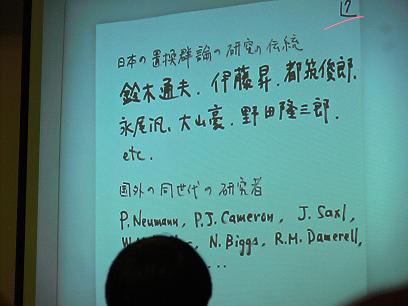 7
日本の置換群論の研究の伝統
鈴木通夫. 伊藤昇. 都筑俊郎.
永尾汎. 大山豪. 野田隆三郎.
etc.
国外の同世代の研究者
P. Neumann, P.J. Cameron, J. Saxl,
N. Biggs, R.M. Damerell,
...